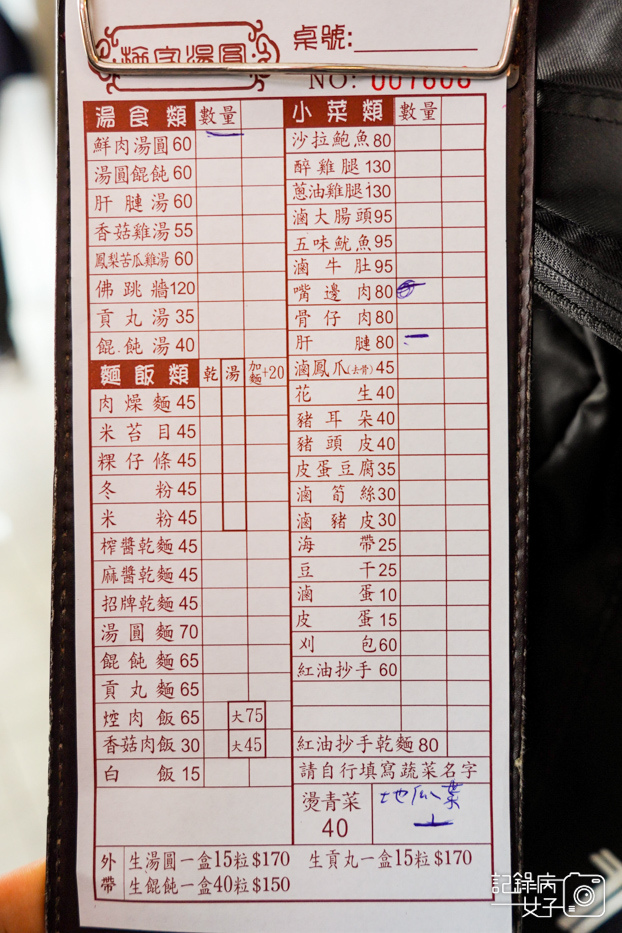 施家湯圓
桌號:
NO: 007606
湯食類 數量
鮮肉湯圓60
湯圓餛飩60
肝膁湯60
香菇雞湯55
鳳梨苦瓜雞湯60
佛跳牆120
貢丸湯35
餛飩湯40
麵飯類 乾 湯 加麵+20
肉燥麵45
米苔目45
粿仔條45
冬粉45
米粉45
榨醬乾麵45
麻醬乾麵45
招牌乾麵45
湯圓麵70
餛飩麵65
貢丸麵65
焢肉飯65 大75
香菇肉飯30 大45
白飯15
小菜類 數量
沙拉鮑魚80
醉雞腿130
蔥油雞腿130
滷大腸頭95
五味魷魚95
滷牛肚95
嘴邊肉80
骨仔肉80
肝膁80
滷鳳爪(去骨)45
花生40
豬耳朵40
豬頭皮40
皮蛋豆腐35
滷筍絲30
滷豬皮30
海帶25
豆干25
滷蛋10
皮蛋15
刈包60
紅油抄手60
紅油抄手乾麵80
請自行填寫蔬菜名字
燙青菜 地瓜葉
40
外帶 生湯圓一盒15粒$170 生貢丸一盒15粒$170
生餛飩一盒40粒$150
記錄病
女子